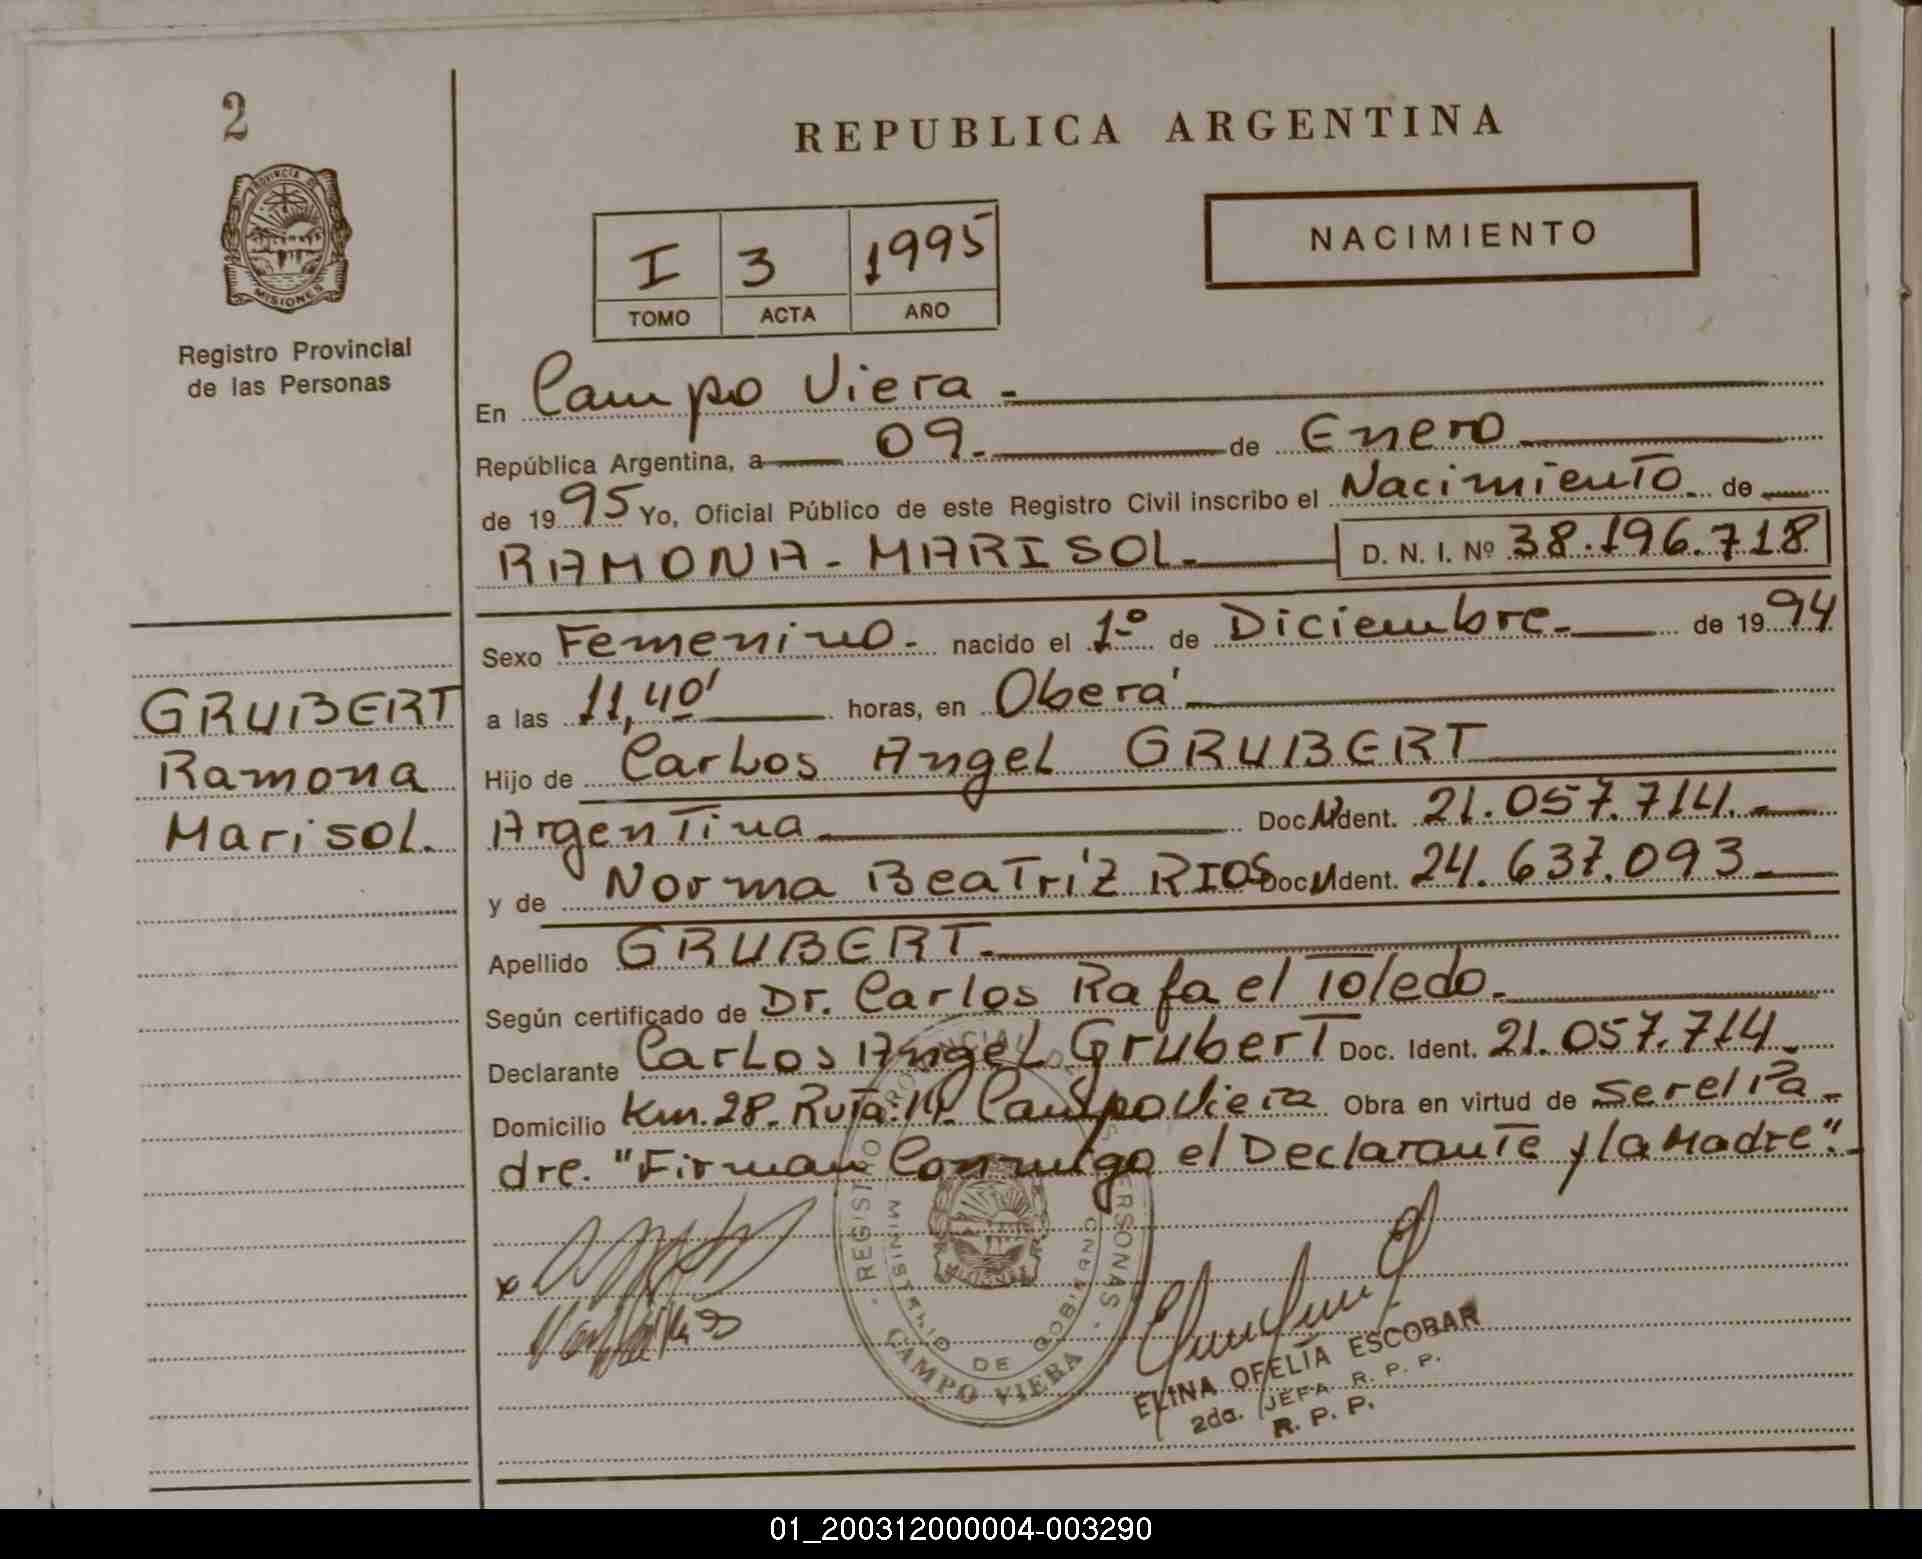 2
REPUBLICA ARGENTINA
PROVINCIA DE
MISIONES
Registro Provincial
de las Personas
I 3 1995
TOMO ACTA AÑO
NACIMIENTO
En Campo Viera.-
República Argentina, a 09.- de Enero
de 1995 Yo, Oficial Público de este Registro Civil inscribo el Nacimiento de
RAMONA - MARISOL.- D. N. I. Nº 38.196.718
Sexo Femenino.- nacido el 1º de Diciembre.- de 1994
a las 11,40' horas, en Oberá
GRUBERT
Ramona
Marisol.
Hijo de Carlos Angel GRUBERT
Argentina Doc. Ident. 21.057.714.-
y de Norma Beatríz RIOS Doc. Ident. 24.637.093.-
Apellido GRUBERT.-
Según certificado de Dr. Carlos Rafael Toledo.-
Declarante Carlos Angel Grubert Doc. Ident. 21.057.714.-
Domicilio Km. 28. Ruta: 14. Campo Viera Obra en virtud de ser el Pa-
dre. "Firman Conmigo el Declarante y la Madre".-
REGISTRO PROVINCIAL DE LAS PERSONAS
MINISTERIO DE GOBIERNO
CAMPO VIERA
ELINA OFELIA ESCOBAR
2da. JEFA R. P. P.
R. P. P.
01_200312000004-003290